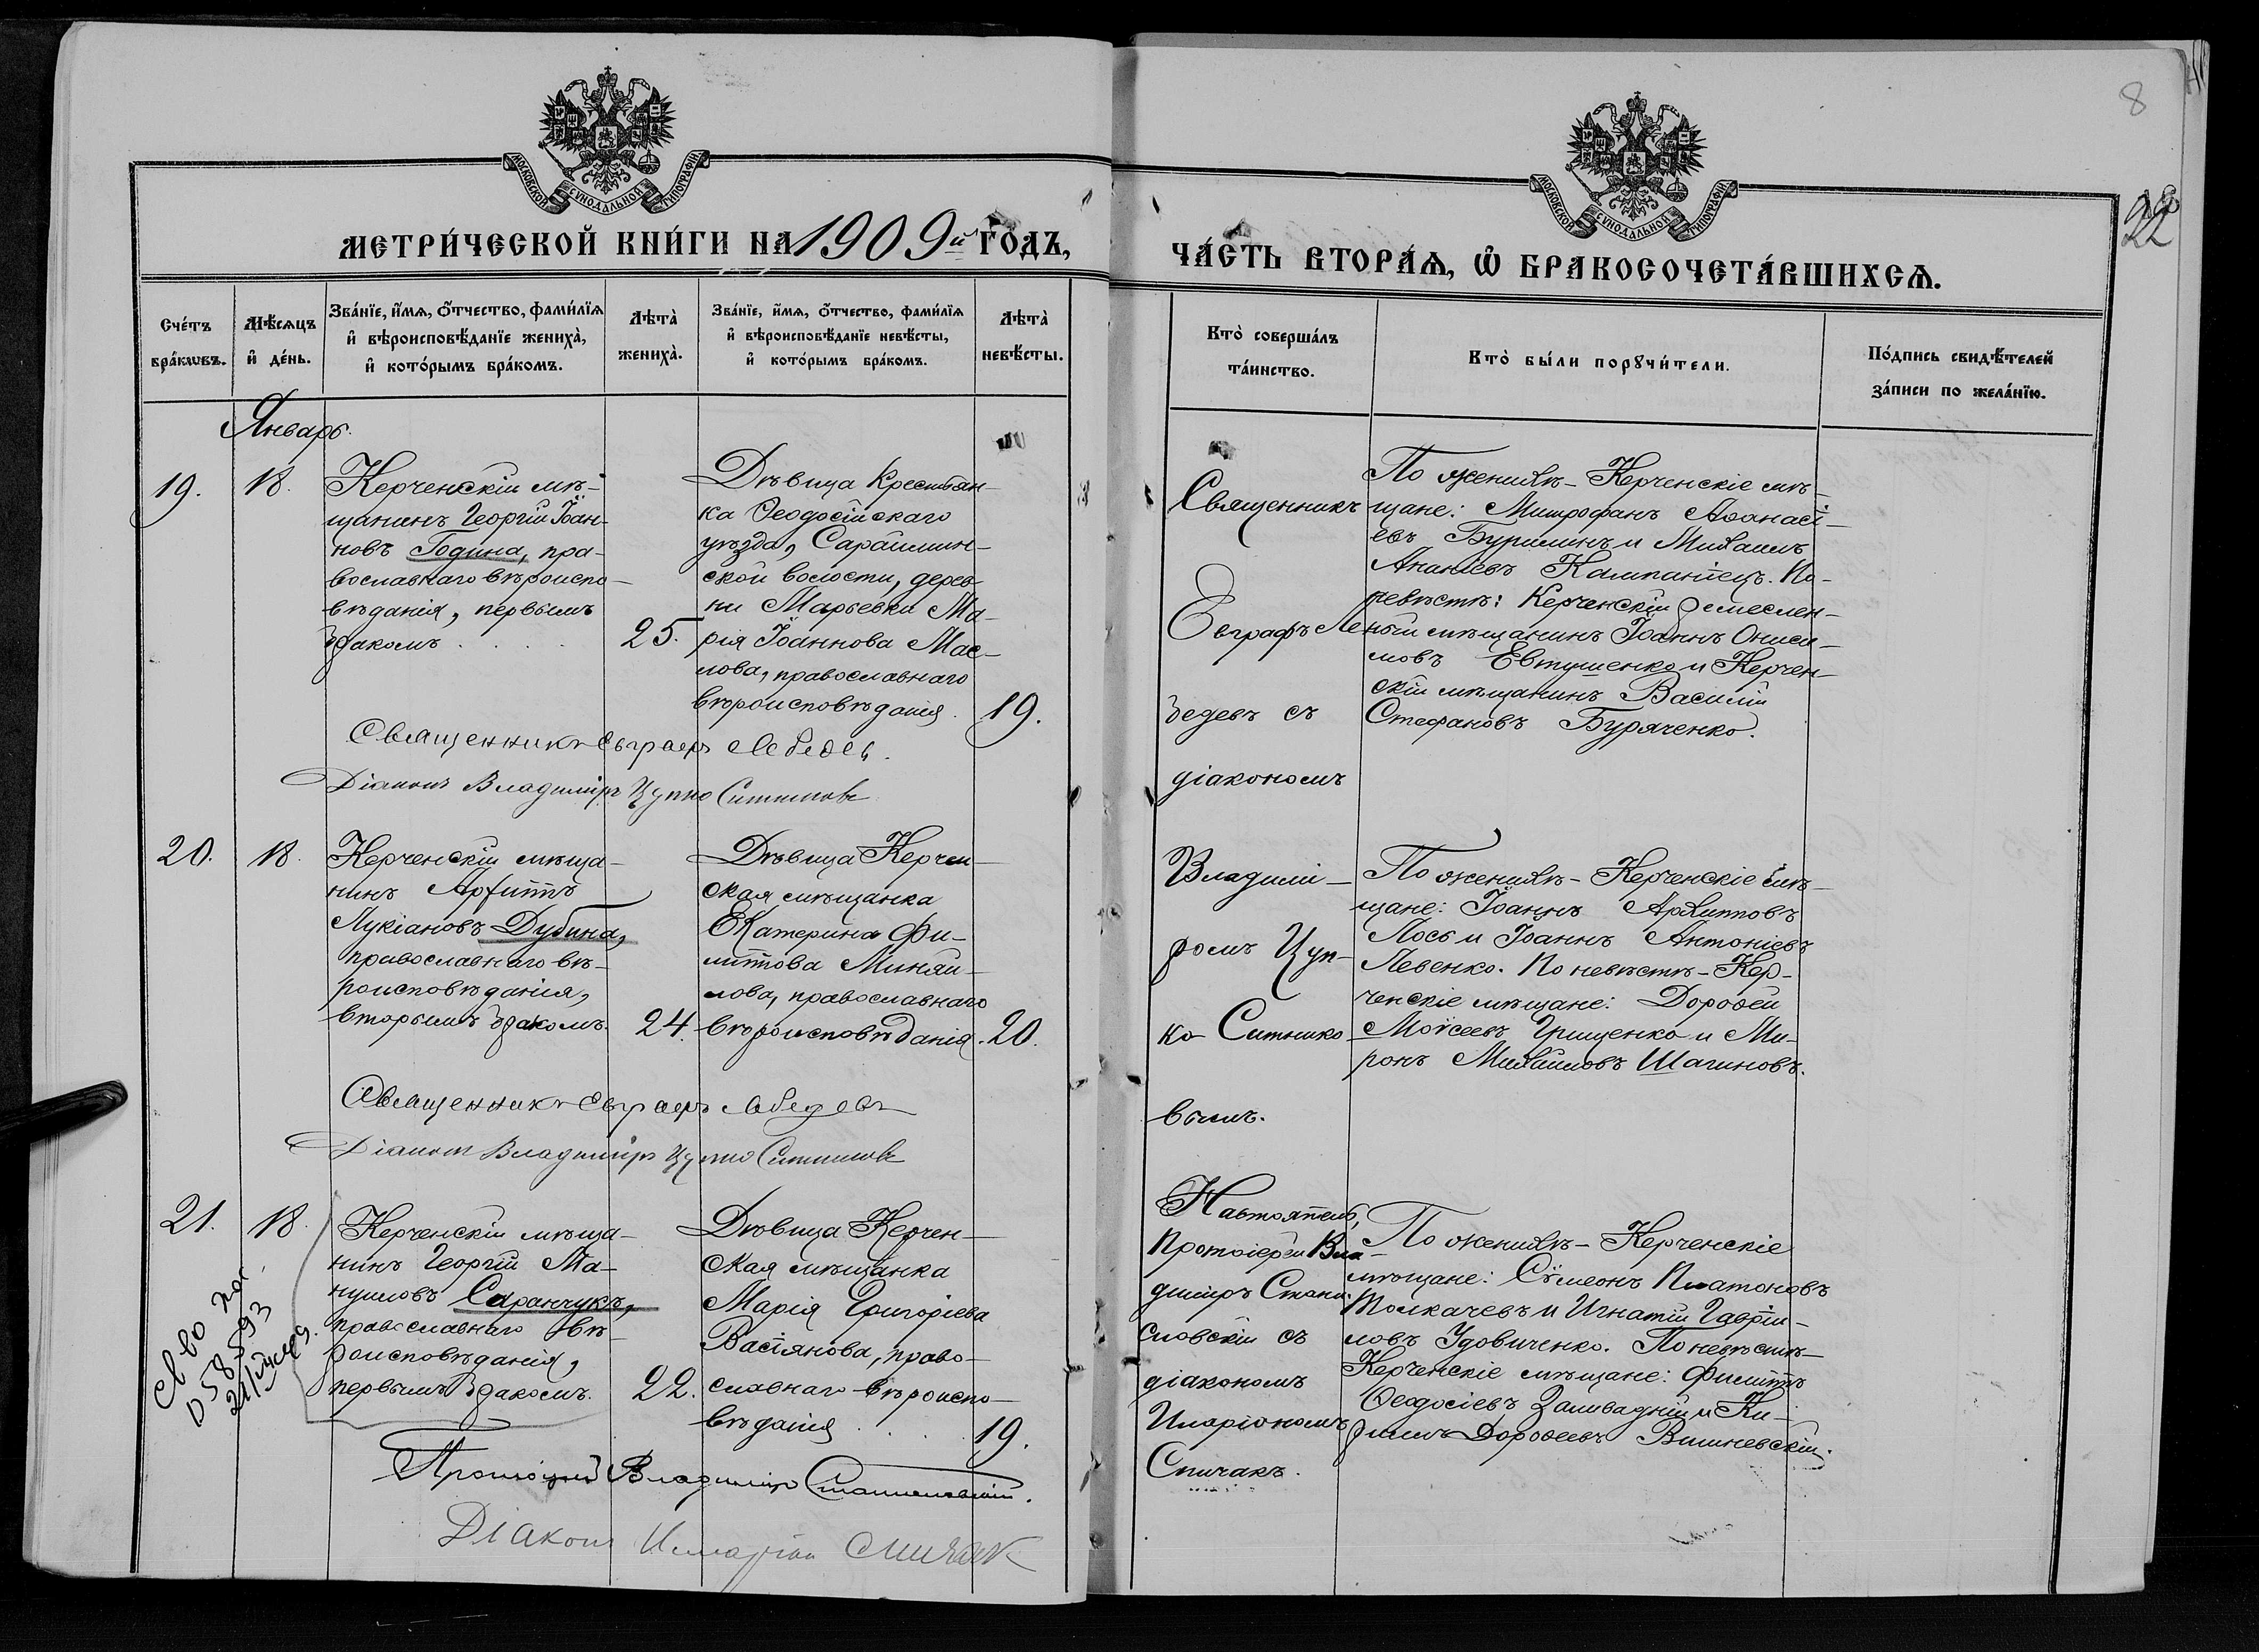 8
22
МОСКОВСКОЙ СѴНОДАЛЬНОЙ ТИПОГРАФІИ
МЕТРИ́ЧЕСКОЙ КНИ́ГИ НА 1909й ГОДЪ,
Сче́тъ бра́кωвъ.
Мѣ́сяцъ и҆ де́нь.
Зва́нїе, и҆́мѧ, ѻ҆́тчество, фами́лїѧ
и҆ вѣроисповѣ́данїе жениха̀,
и҆ кото́рымъ бра́комъ.
Лѣта̀ жениха̀.
Зва́нїе, и҆́мѧ, ѻ҆́тчество, фами́лїѧ
и҆ вѣроисповѣ́данїе невѣ́сты,
и҆ кото́рымъ бра́комъ.
Лѣта̀ невѣ́сты.
Январь.
19.
18.
Керченскій мѣ-
щанинъ Георгій Іоан-
новъ Година, пра-
вославнаго вѣроиспо-
вѣданія, первымъ
бракомъ . . . .
25.
Дѣвица крестьян-
ка Ѳеодосійскаго
уѣзда, Сарайминс-
ской волости, дерев-
ни Марьевки Ма-
рія Іоаннова Мас-
лова, православнаго
вѣроисповѣданія.
19.
Священникъ Евграфъ Лебедев.
Діаконъ Владиміръ Цупко Ситников
20.
18.
Керченскій мѣща-
нинъ Архиппъ
Лукіановъ Дубина,
православнаго вѣ-
роисповѣданія,
вторымъ бракомъ.
24.
Дѣвица Керчен-
ская мѣщанка
Екатерина Фи-
липпова Миняй-
лова, православнаго
вѣроисповѣданія.
20.
Священникъ Евграфъ Лебедевъ
Діаконъ Владиміръ Цупко Ситников
21.
18.
Керченскій мѣща-
нинъ Георгій Ма-
нуиловъ Саранчукъ,
православнаго вѣ-
роисповѣданія,
первымъ бракомъ.
22.
Дѣвица Керчен-
ская мѣщанка
Марія Григоріева
Вассіянова, право-
славнаго вѣроиспо-
вѣданія . . . .
19.
58593
Протоіерей Владиміръ Станиславскій.
Діаконъ Иларіон Спичак
МОСКОВСКОЙ СѴНОДАЛЬНОЙ ТИПОГРАФІИ
ЧА́СТЬ ВТОРА́Ѧ, Ѽ БРАКОСОЧЕТА́ВШИХСѦ.
Кто̀ соверша́лъ
та́инство.
Кто̀ бы́ли порꙋчи́тели.
По́дпись свидѣ́телей
за́писи по жела́нїю.
Священникъ
Евграфъ Ле-
бедевъ съ
діакономъ
Владимі-
ромъ Цуп-
ко Ситнико-
вымъ.
По женихѣ - Керченскіе мѣ-
щане: Митрофанъ Аѳанасі-
евъ Бурилинъ и Михаилъ
Ананіевъ Кампаніецъ. По
невѣстѣ: Керченскій ремеслен-
ный мѣщанинъ Іоаннъ Ониси-
мовъ Евтушенко и Керчен-
скій мѣщанинъ Василій
Стефановъ Буряченко.
По женихѣ - Керченскіе мѣ-
щане: Іоаннъ Архипповъ
Лось и Іоаннъ Антоніевъ
Левенко. По невѣстѣ - Кер-
ченскіе мѣщане: Дороѳей
Моѵсеевъ Грищенко и Ми-
ронъ Михаиловъ Шагиновъ.
Настоятель,
Протоіерей Вла-
диміръ Стани-
славскій съ
діакономъ
Иларіономъ
Спичакъ.
По женихѣ - Керченскіе
мѣщане: Сѵмеонъ Платоновъ
Толкачевъ и Игнатій Гаврі-
ловъ Удовиченко. По невѣстѣ -
Керченскіе мѣщане: Филиппъ
Ѳеодосіевъ Заливадній и Ки-
риллъ Дороѳеевъ Вишневскій.